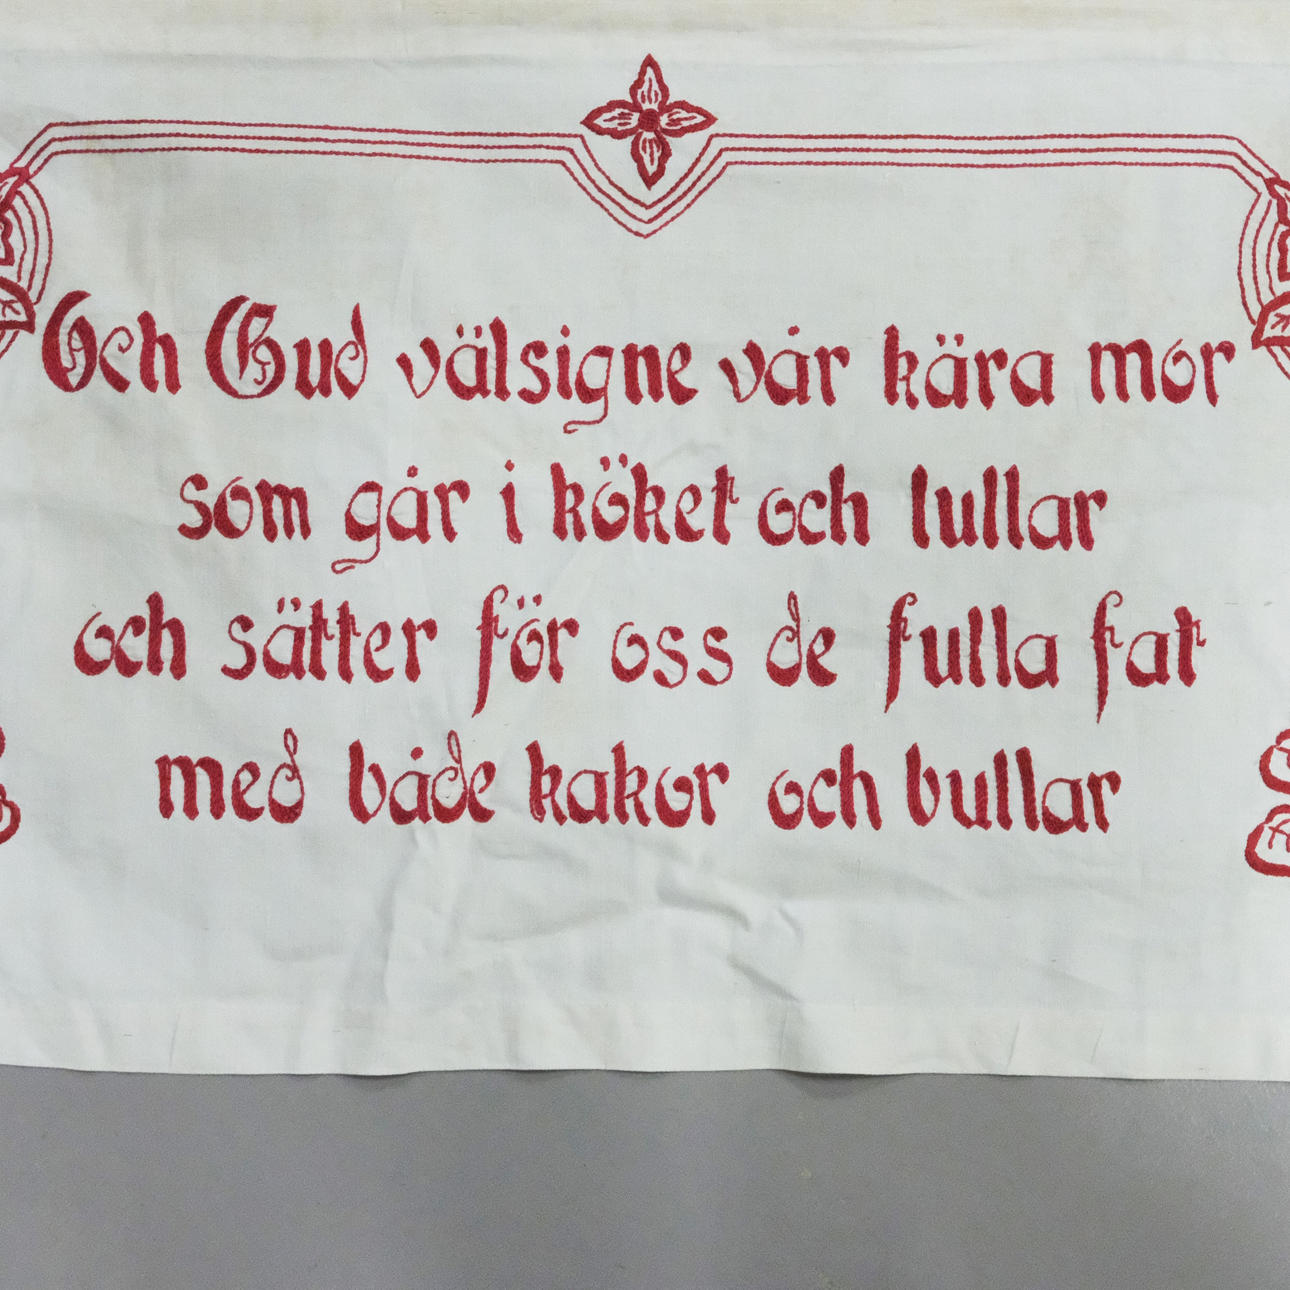 Och Gud välsigne vår kära mor
som går i köket och lullar
och sätter för oss de fulla fat
med både kakor och bullar